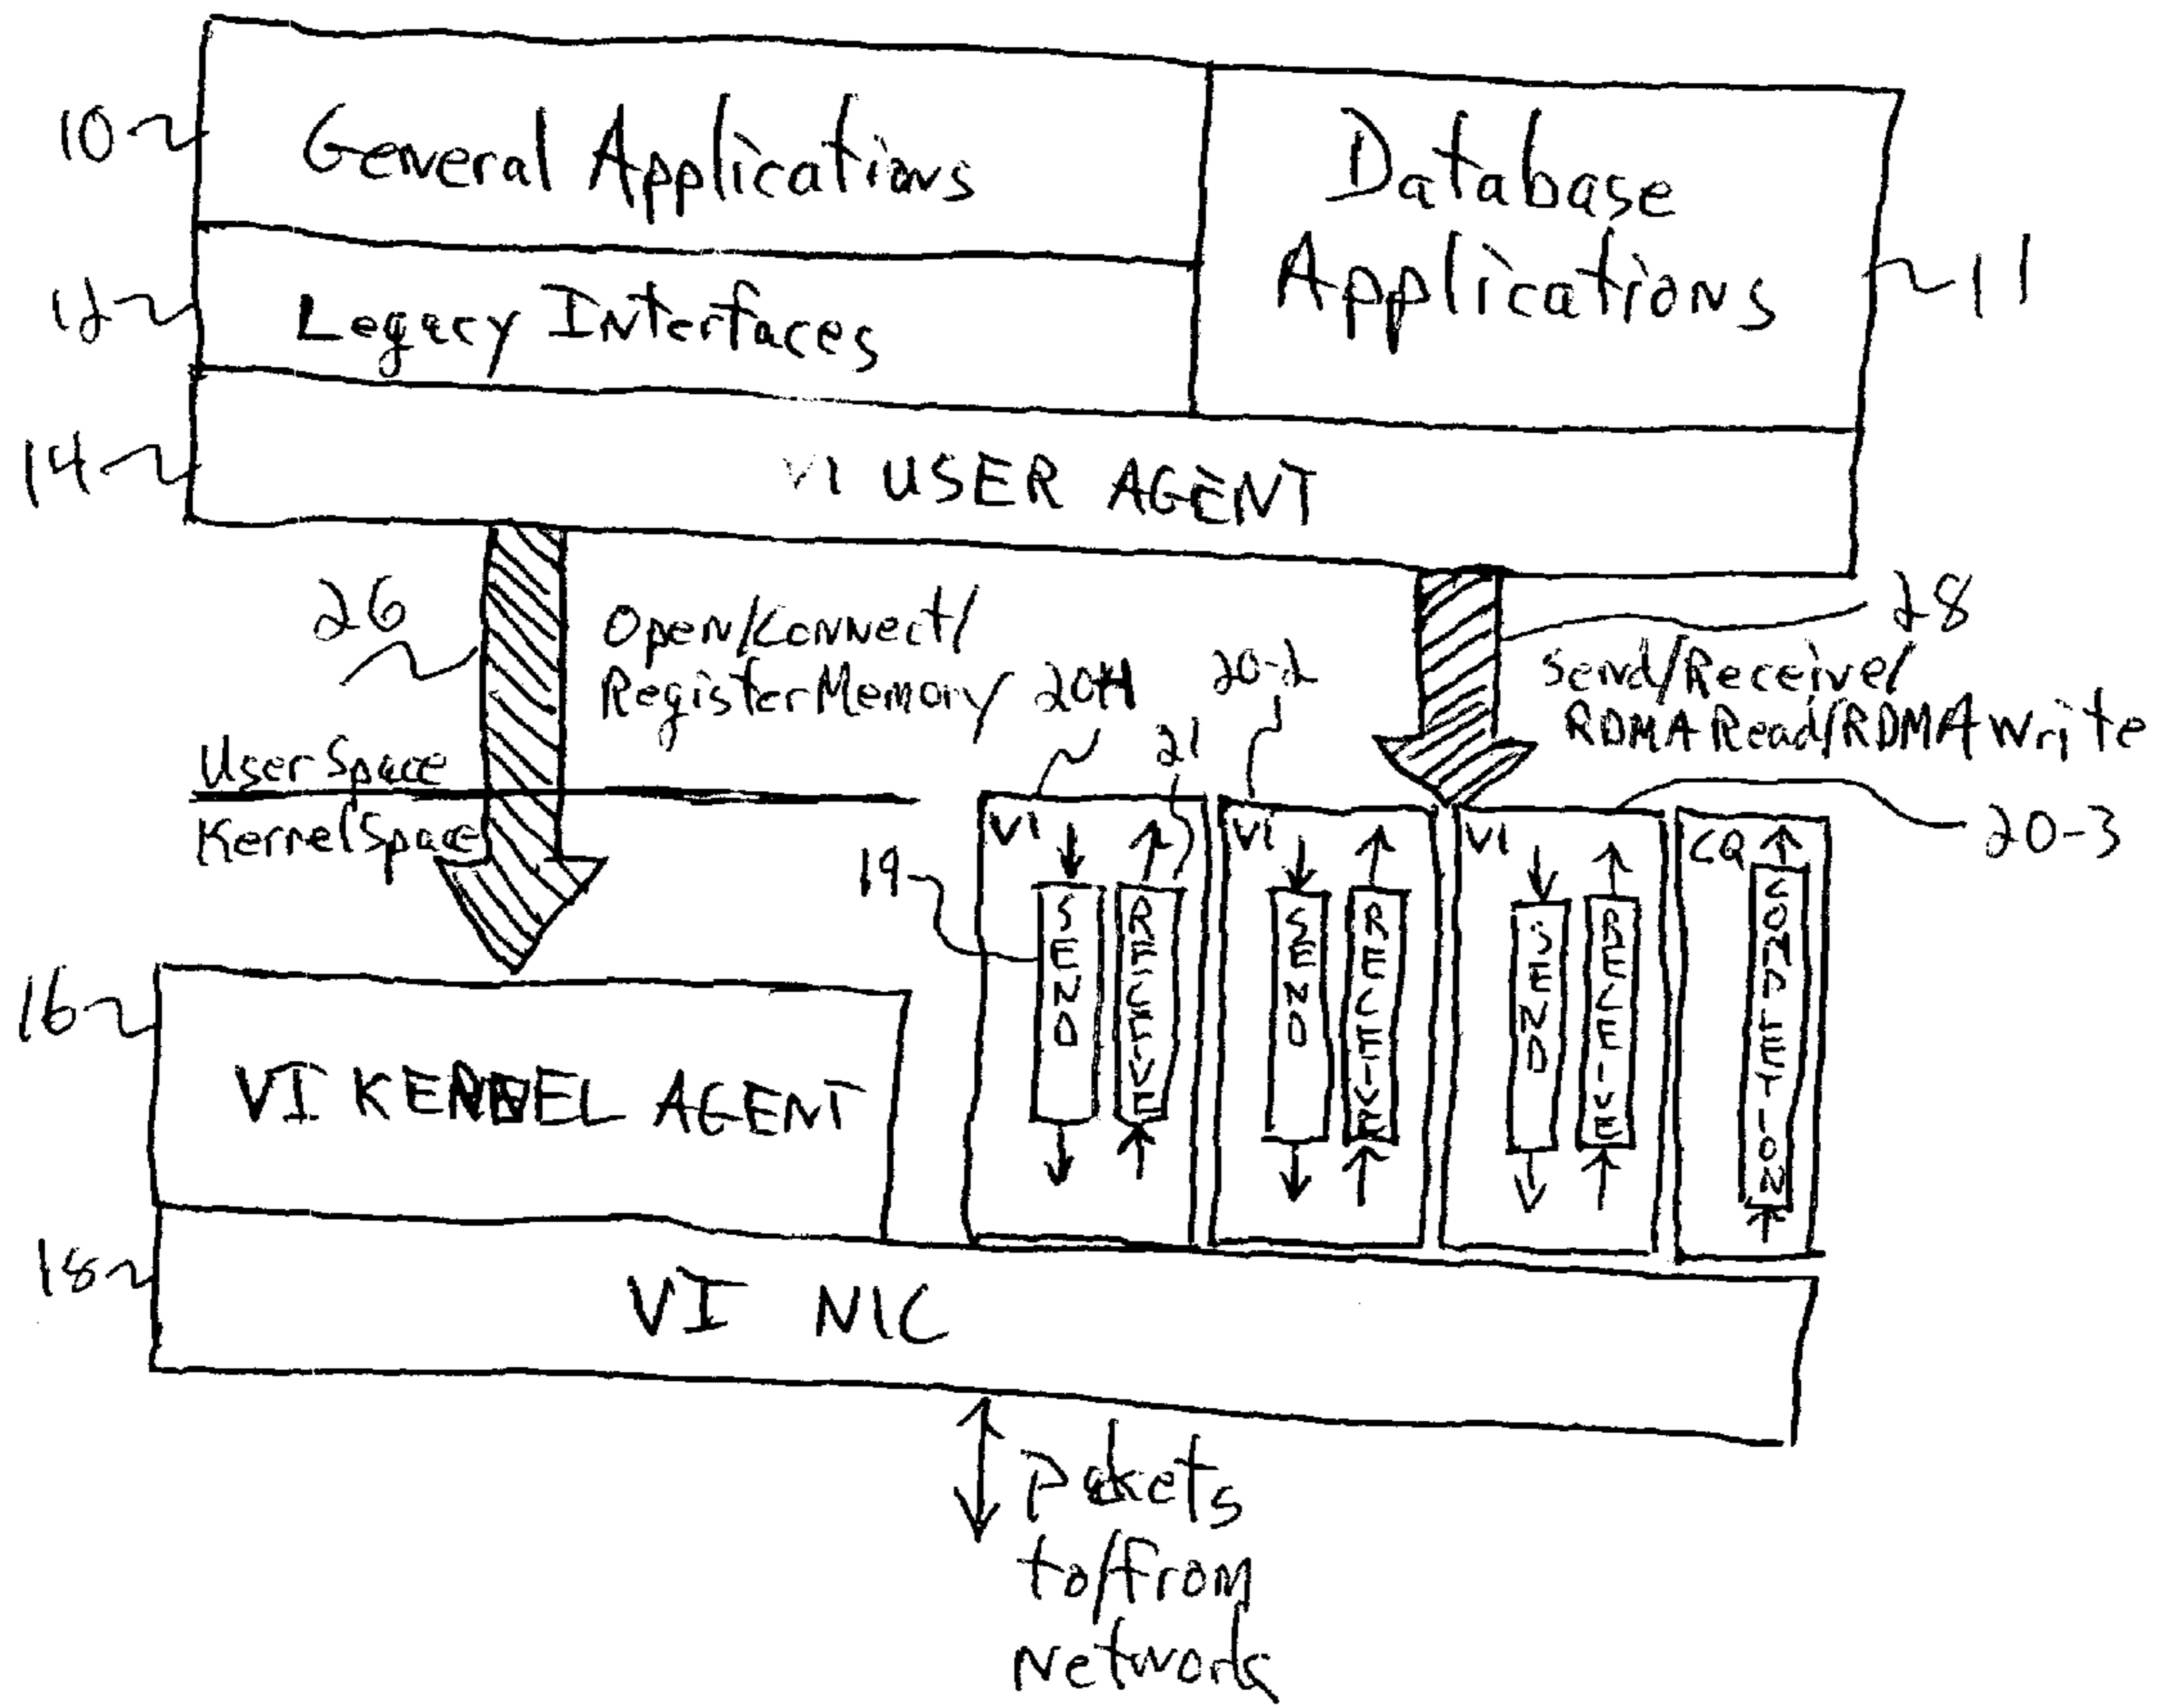 10
General Applications
Database
Applications
11
12
Legacy Interfaces
14
VI USER AGENT
26
Open/Connect/
Register Memory
28
Send/Receive/
RDMA Read/RDMA Write
User Space
Kernel Space
20-1
20-2
21
20-3
19
VI
SEND
RECEIVE
VI
SEND
RECEIVE
VI
SEND
RECEIVE
CQ
COMPLETION
16
VI KERNEL AGENT
18
VI NIC
Packets
to/from
Network